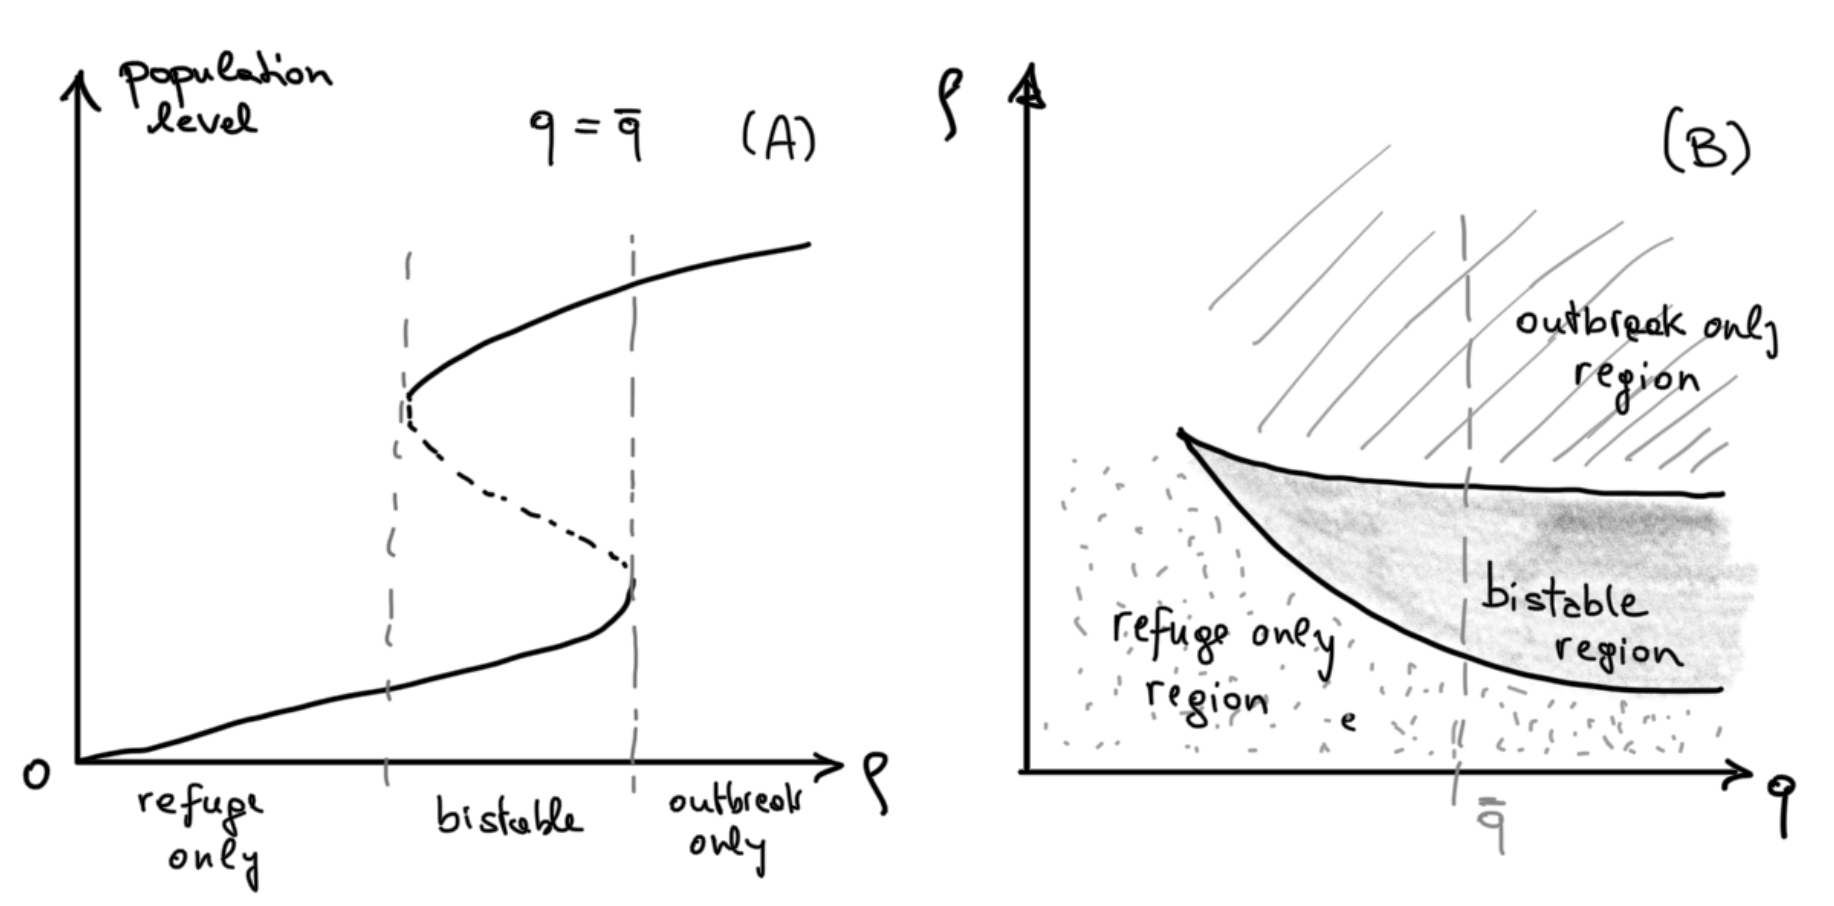 population
level
q = q̄ (A)
0
ρ
refuge
only
bistable
outbreak
only
ρ
(B)
outbreak only
region
bistable
region
refuge only
region
q
q̄